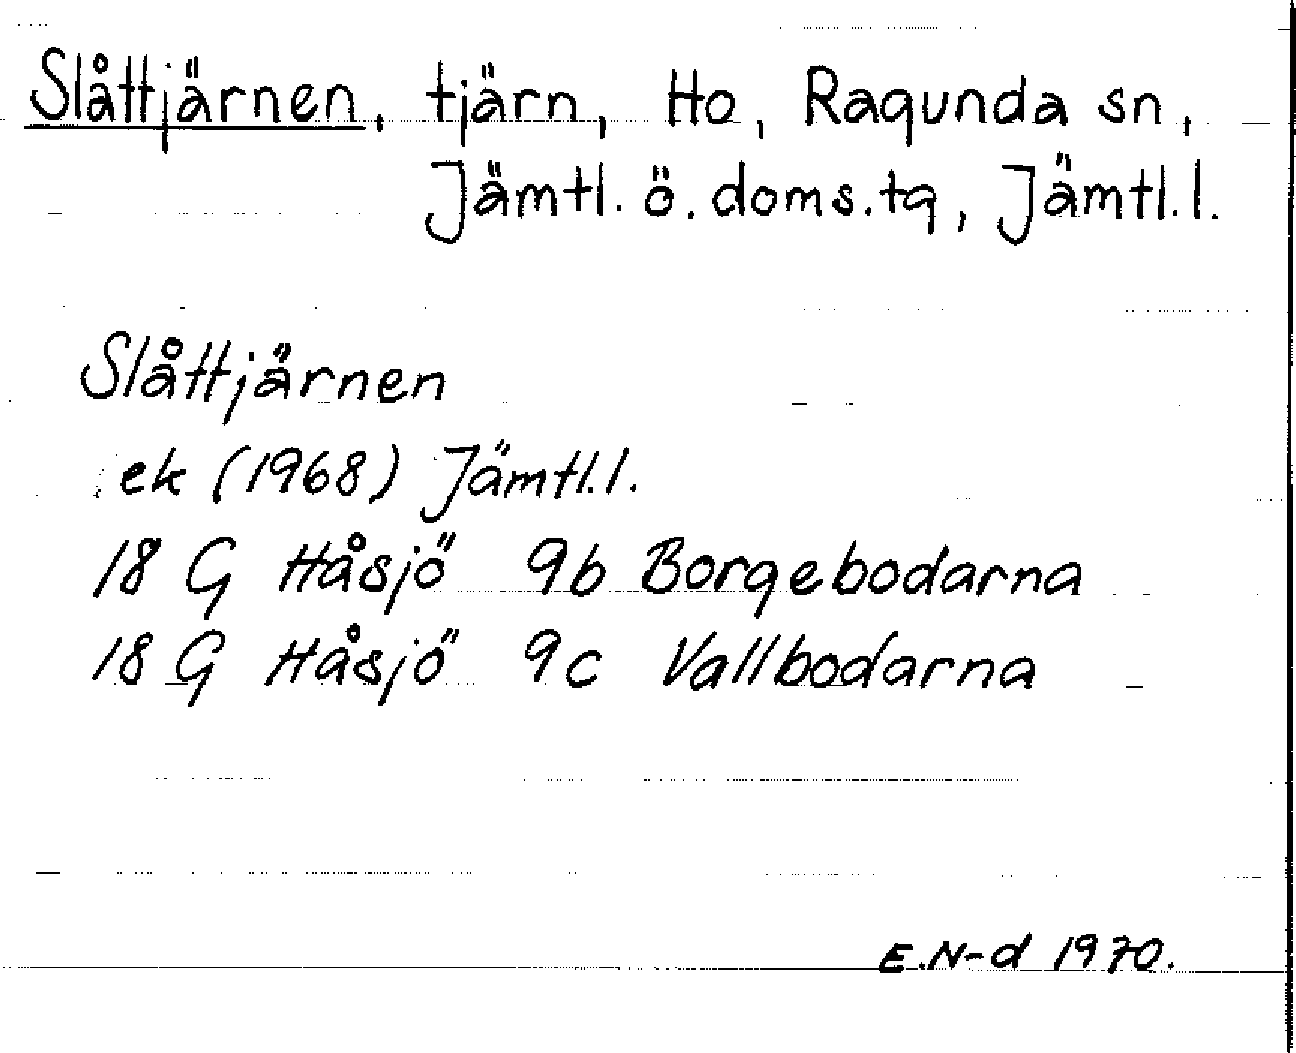 Slåttjärnen, tjärn, Ho, Ragunda sn,
Jämtl. ö. doms.tg, Jämtl.l.
Slåttjärnen
ek (1968) Jämtl.l.
18 G Håsjö 9b Borgebodarna
18 G Håsjö 9c Vallbodarna
E.N-d 1970.